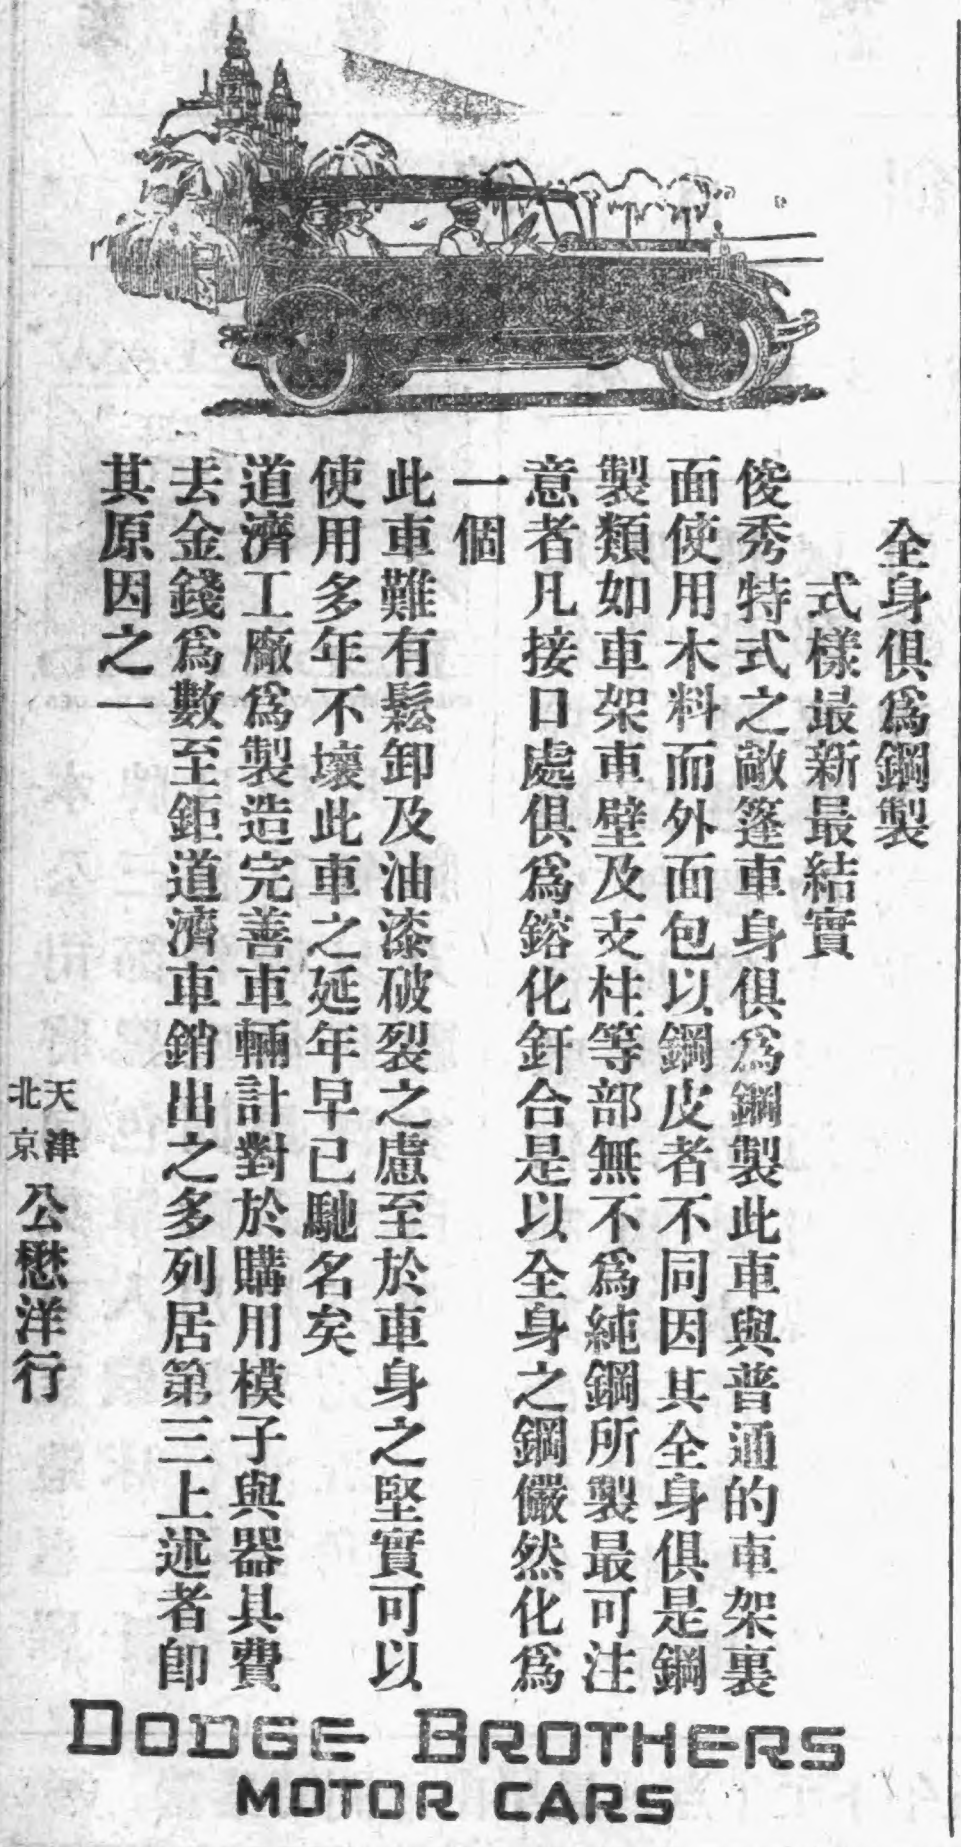 全身俱爲鋼製
式樣最新最結實
俊秀特式之敞篷車身俱爲鋼製此車與普通的車架裏
面使用木料而外面包以鋼皮者不同因其全身俱是鋼
製類如車架車壁及支柱等部無不爲純鋼所製最可注
意者凡接口處俱爲鎔化釬合是以全身之鋼儼然化爲
一個
此車難有鬆卸及油漆破裂之慮至於車身之堅實可以
使用多年不壞此車之延年早已馳名矣
道濟工廠爲製造完善車輛計對於購用模子與器具費
去金錢爲數至鉅道濟車銷出之多列居第三上述者卽
其原因之一
天津
北京
公懋洋行
DODGE BROTHERS
MOTOR CARS